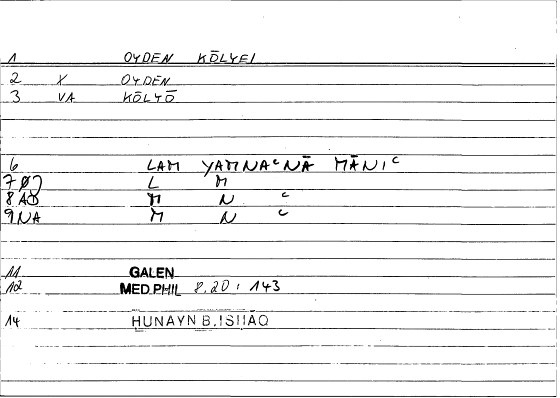 1 OYDEN KŌLYEI
2 X OYDEN
3 VA KŌLYŌ
6 LAM YAMNAᶜNĀ MĀNIᶜ
7 L M
8 AD M N ᶜ
9 NA M N ᶜ
11 GALEN
12 MED.PHIL 8.20 : 143
14 HUNAYN B.ISHAQ